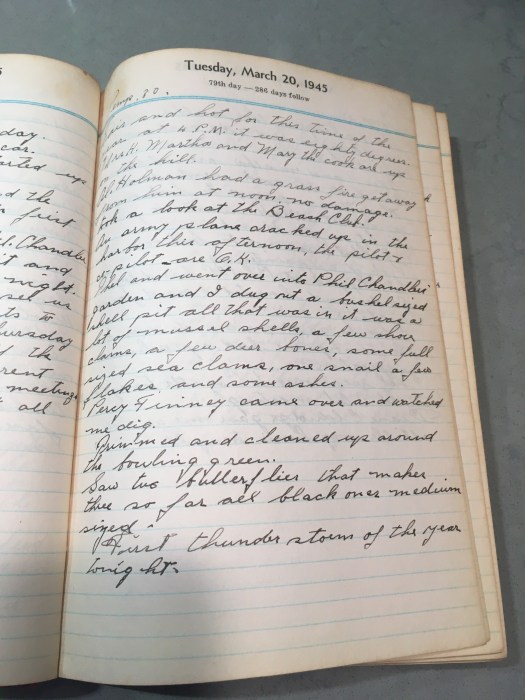 5
day.
car.
first
Chandler
it and
night.
sel us
ts to
ursday
d the
rent
meeting
all
Tuesday, March 20, 1945
79th day — 286 days follow
Temp. 80.
and hot for this time of the
year at 4 P.M. it was eighty degrees.
Martha and Mary the cook are up
on the hill.
Holman had a grass fire get away
from him at noon, no damage.
Took a look at the Beach Club.
An army plane cracked up in the
harbor this afternoon, the pilot &
co-pilot are O.K.
and went over into Phil Chandlers'
garden and I dug out a bushel sized
shell pit all that was in it was a
lot of mussel shells, a few shore
clams, a few deer bones, some full
sized sea clams, one snail a few
flakes and some ashes.
Percy Finney came over and watched
me dig.
Trimmed and cleaned up around
the bowling green.
Saw two butterflies that makes
three so far all black ones medium
sized.
First thunder storm of the year
tonight.